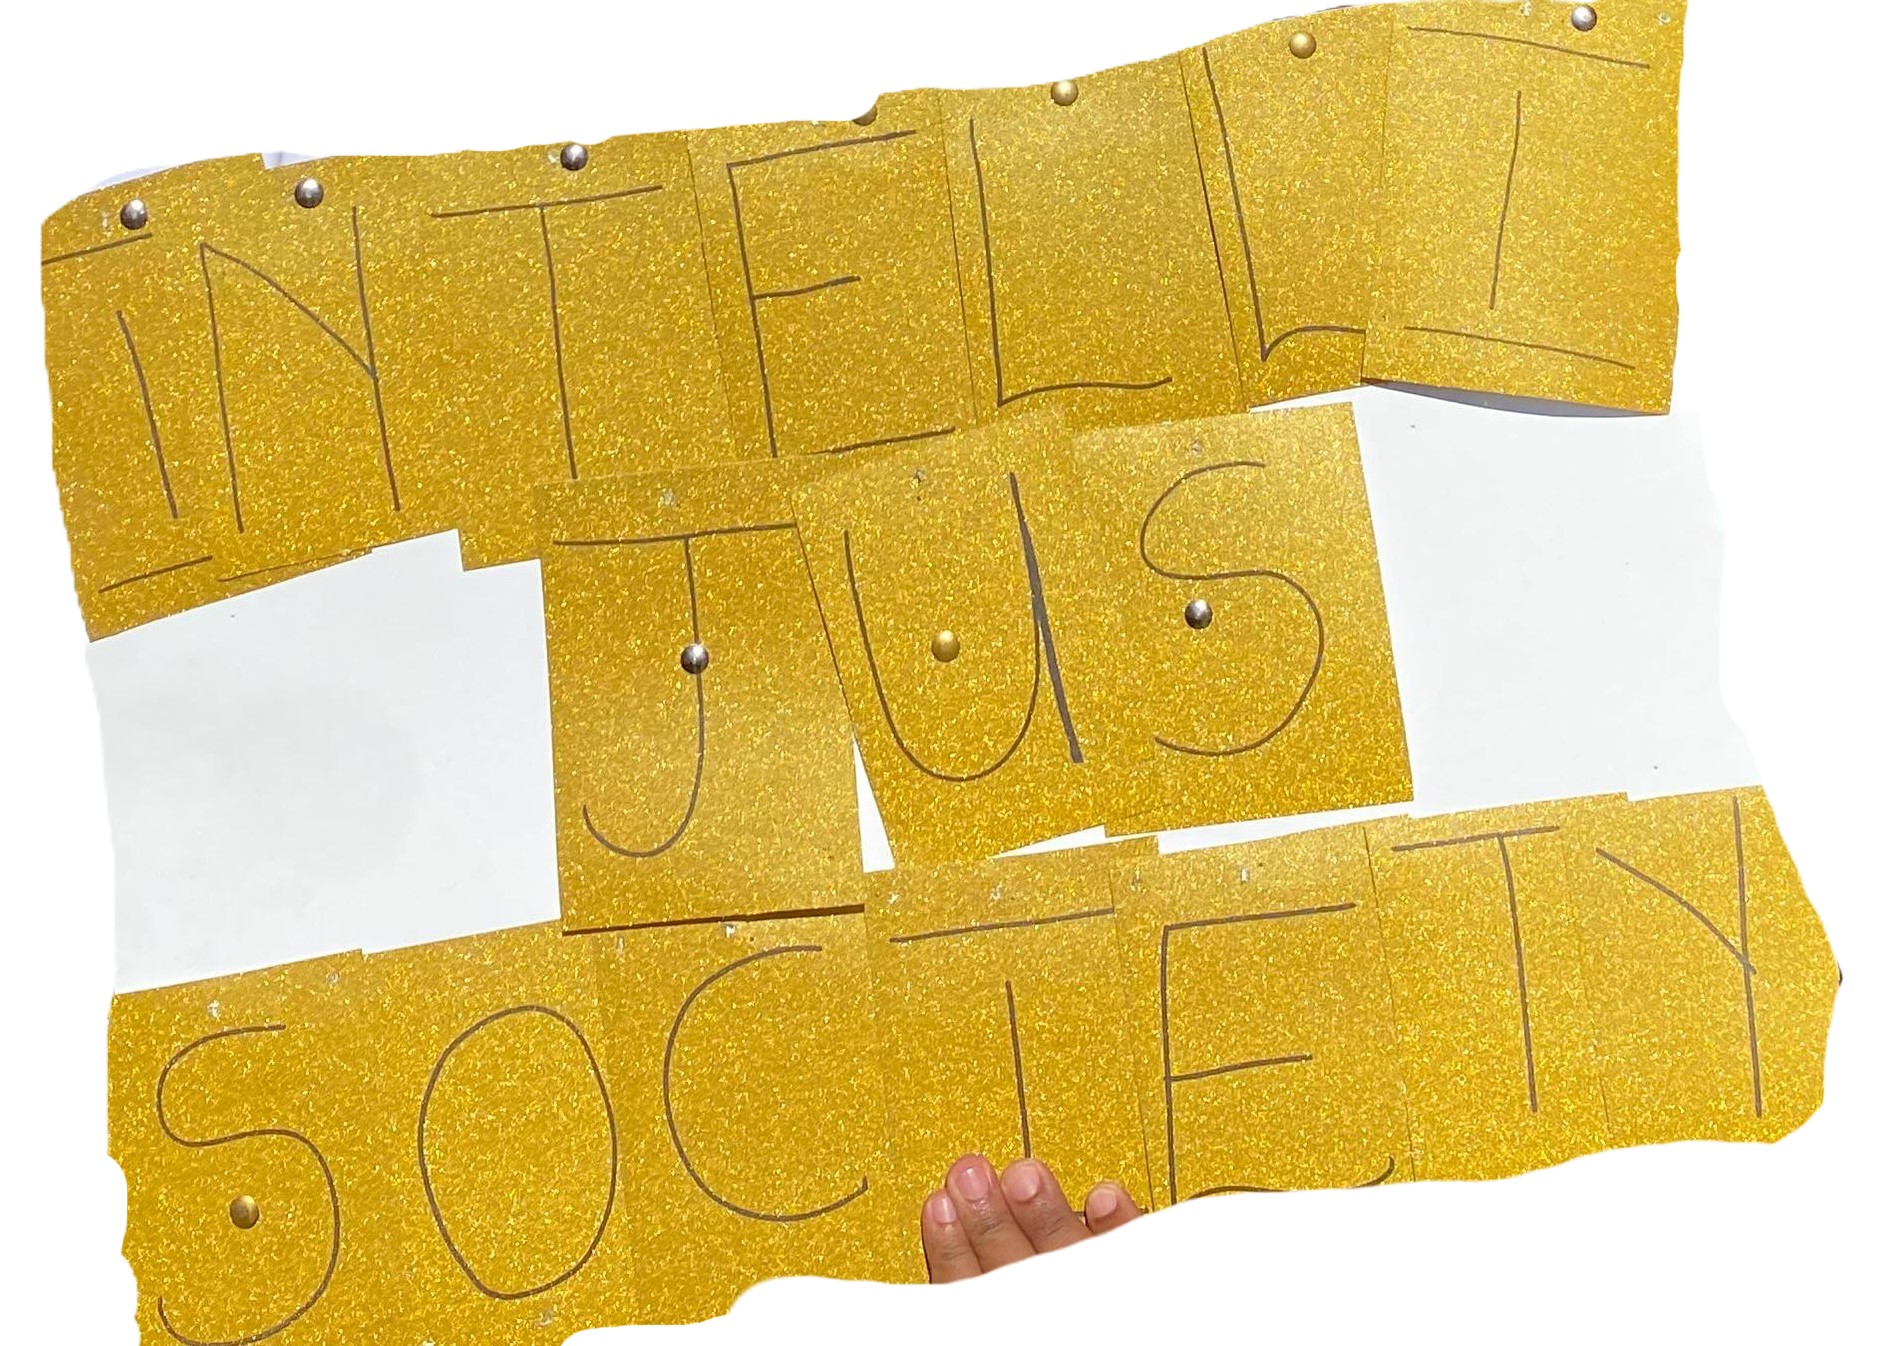 INTELLI
JUS
SOCIETY